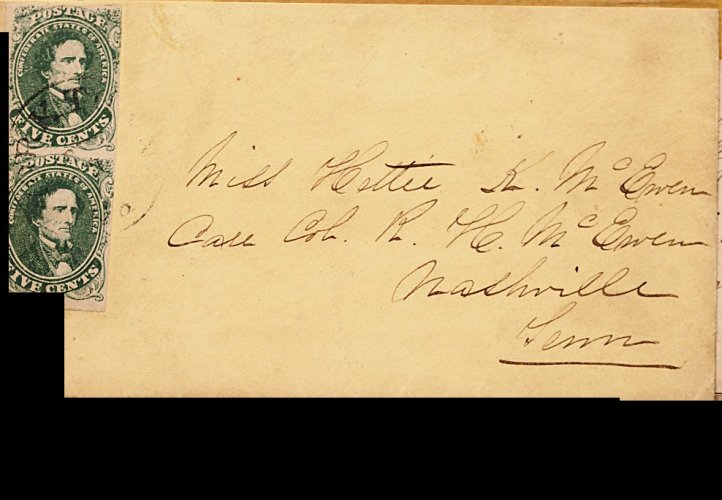 POSTAGE
CONFEDERATE STATES OF AMERICA
FIVE CENTS
POSTAGE
CONFEDERATE STATES OF AMERICA
FIVE CENTS
Miss Hettie K. McEwen
Care Col. R. H. McEwen
Nashville
Tenn